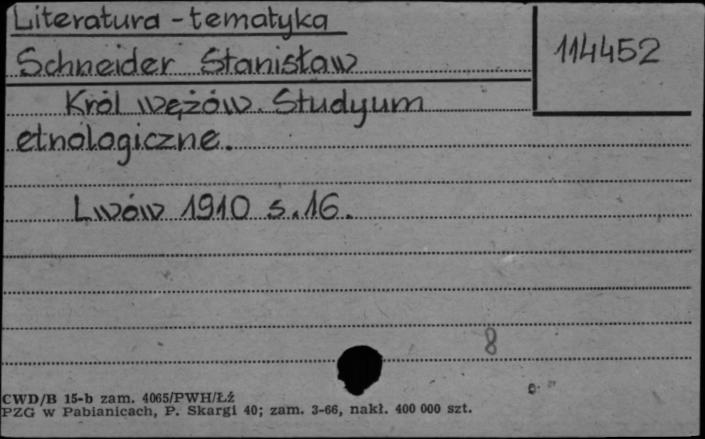 Literatura - tematyka
Schneider Stanisław
114452
Król wężów. Studyum
etnologiczne.
Lwów 1910 s. 16.
8
CWD/B 15-b zam. 4065/PWH/Łź
PZG w Pabianicach, P. Skargi 40; zam. 3-66, nakł. 400 000 szt.